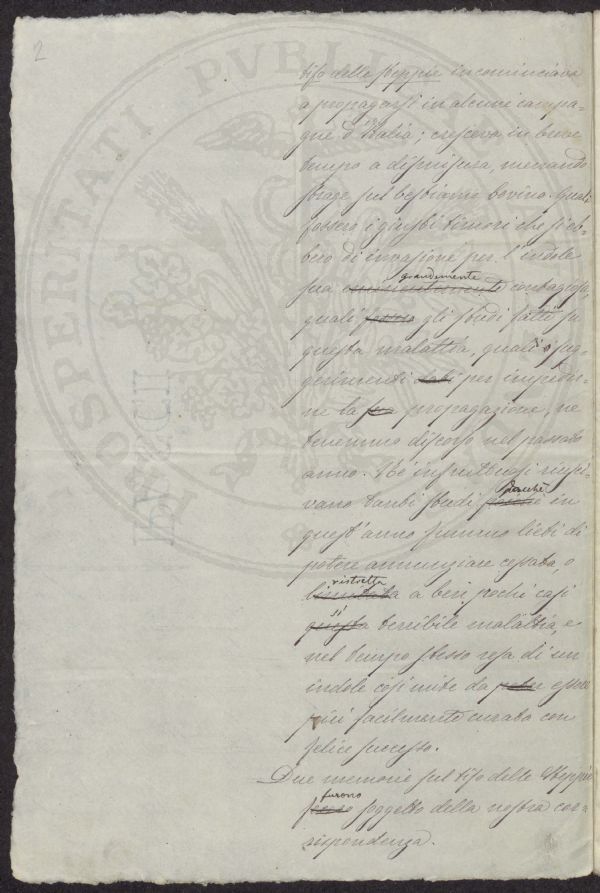 2
tifo delle steppie incominciava
a propagarsi in alcune campa-
gne d'Italia; cresceva in breve
tempo a dismisura, menando
strage sul bestiame bovino. Quali
fossero i giusti timori che si eb-
bero di invasione per l'indole
sua grandemente contagiosa,
quali furono gli studi fatti su
questa malattia, quali i sug-
gerimenti dati per impedir-
ne la sua propagazione, ne
tenemmo discorso nel passato
anno. Nè infruttuosi riusci-
vano tanti studi perchè in
quest'anno fummo lieti di
potere annunziare cessata, o
ristretta
limitata a ben pochi casi
sì
questa terribile malattia, e
nel tempo stesso resa di un
indole così mite da poter essere
più facilmente curata con
felice successo.
Due memorie sul tifo delle Steppie
furono
soggetto della nostra cor-
rispondenza.
PROSPERITATI PVBLICAE